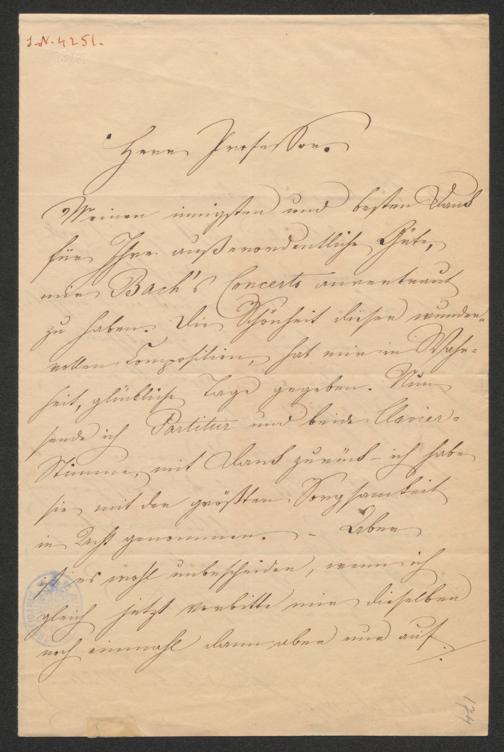 I.N. 4251.
Herr Professor.
Meinen innigsten und besten Dank
für Ihre außerordentliche Güte,
mir Bach's Concerts anvertraut
zu haben. Die Schönheit dieser wunder-
vollen Composition, hat mir in Wahr-
heit, glückliche Tage gegeben. Nun
sende ich Partitur und beide Clavier-
Stimme, mit Dank zurück – ich habe
sie mit der größten Sorgsamkeit
in Acht genommen. – Aber
ist es wohl unbescheiden, wenn ich
gleich jetzt erbitte mir dieselben
noch einmahl dann aber nur auf
174